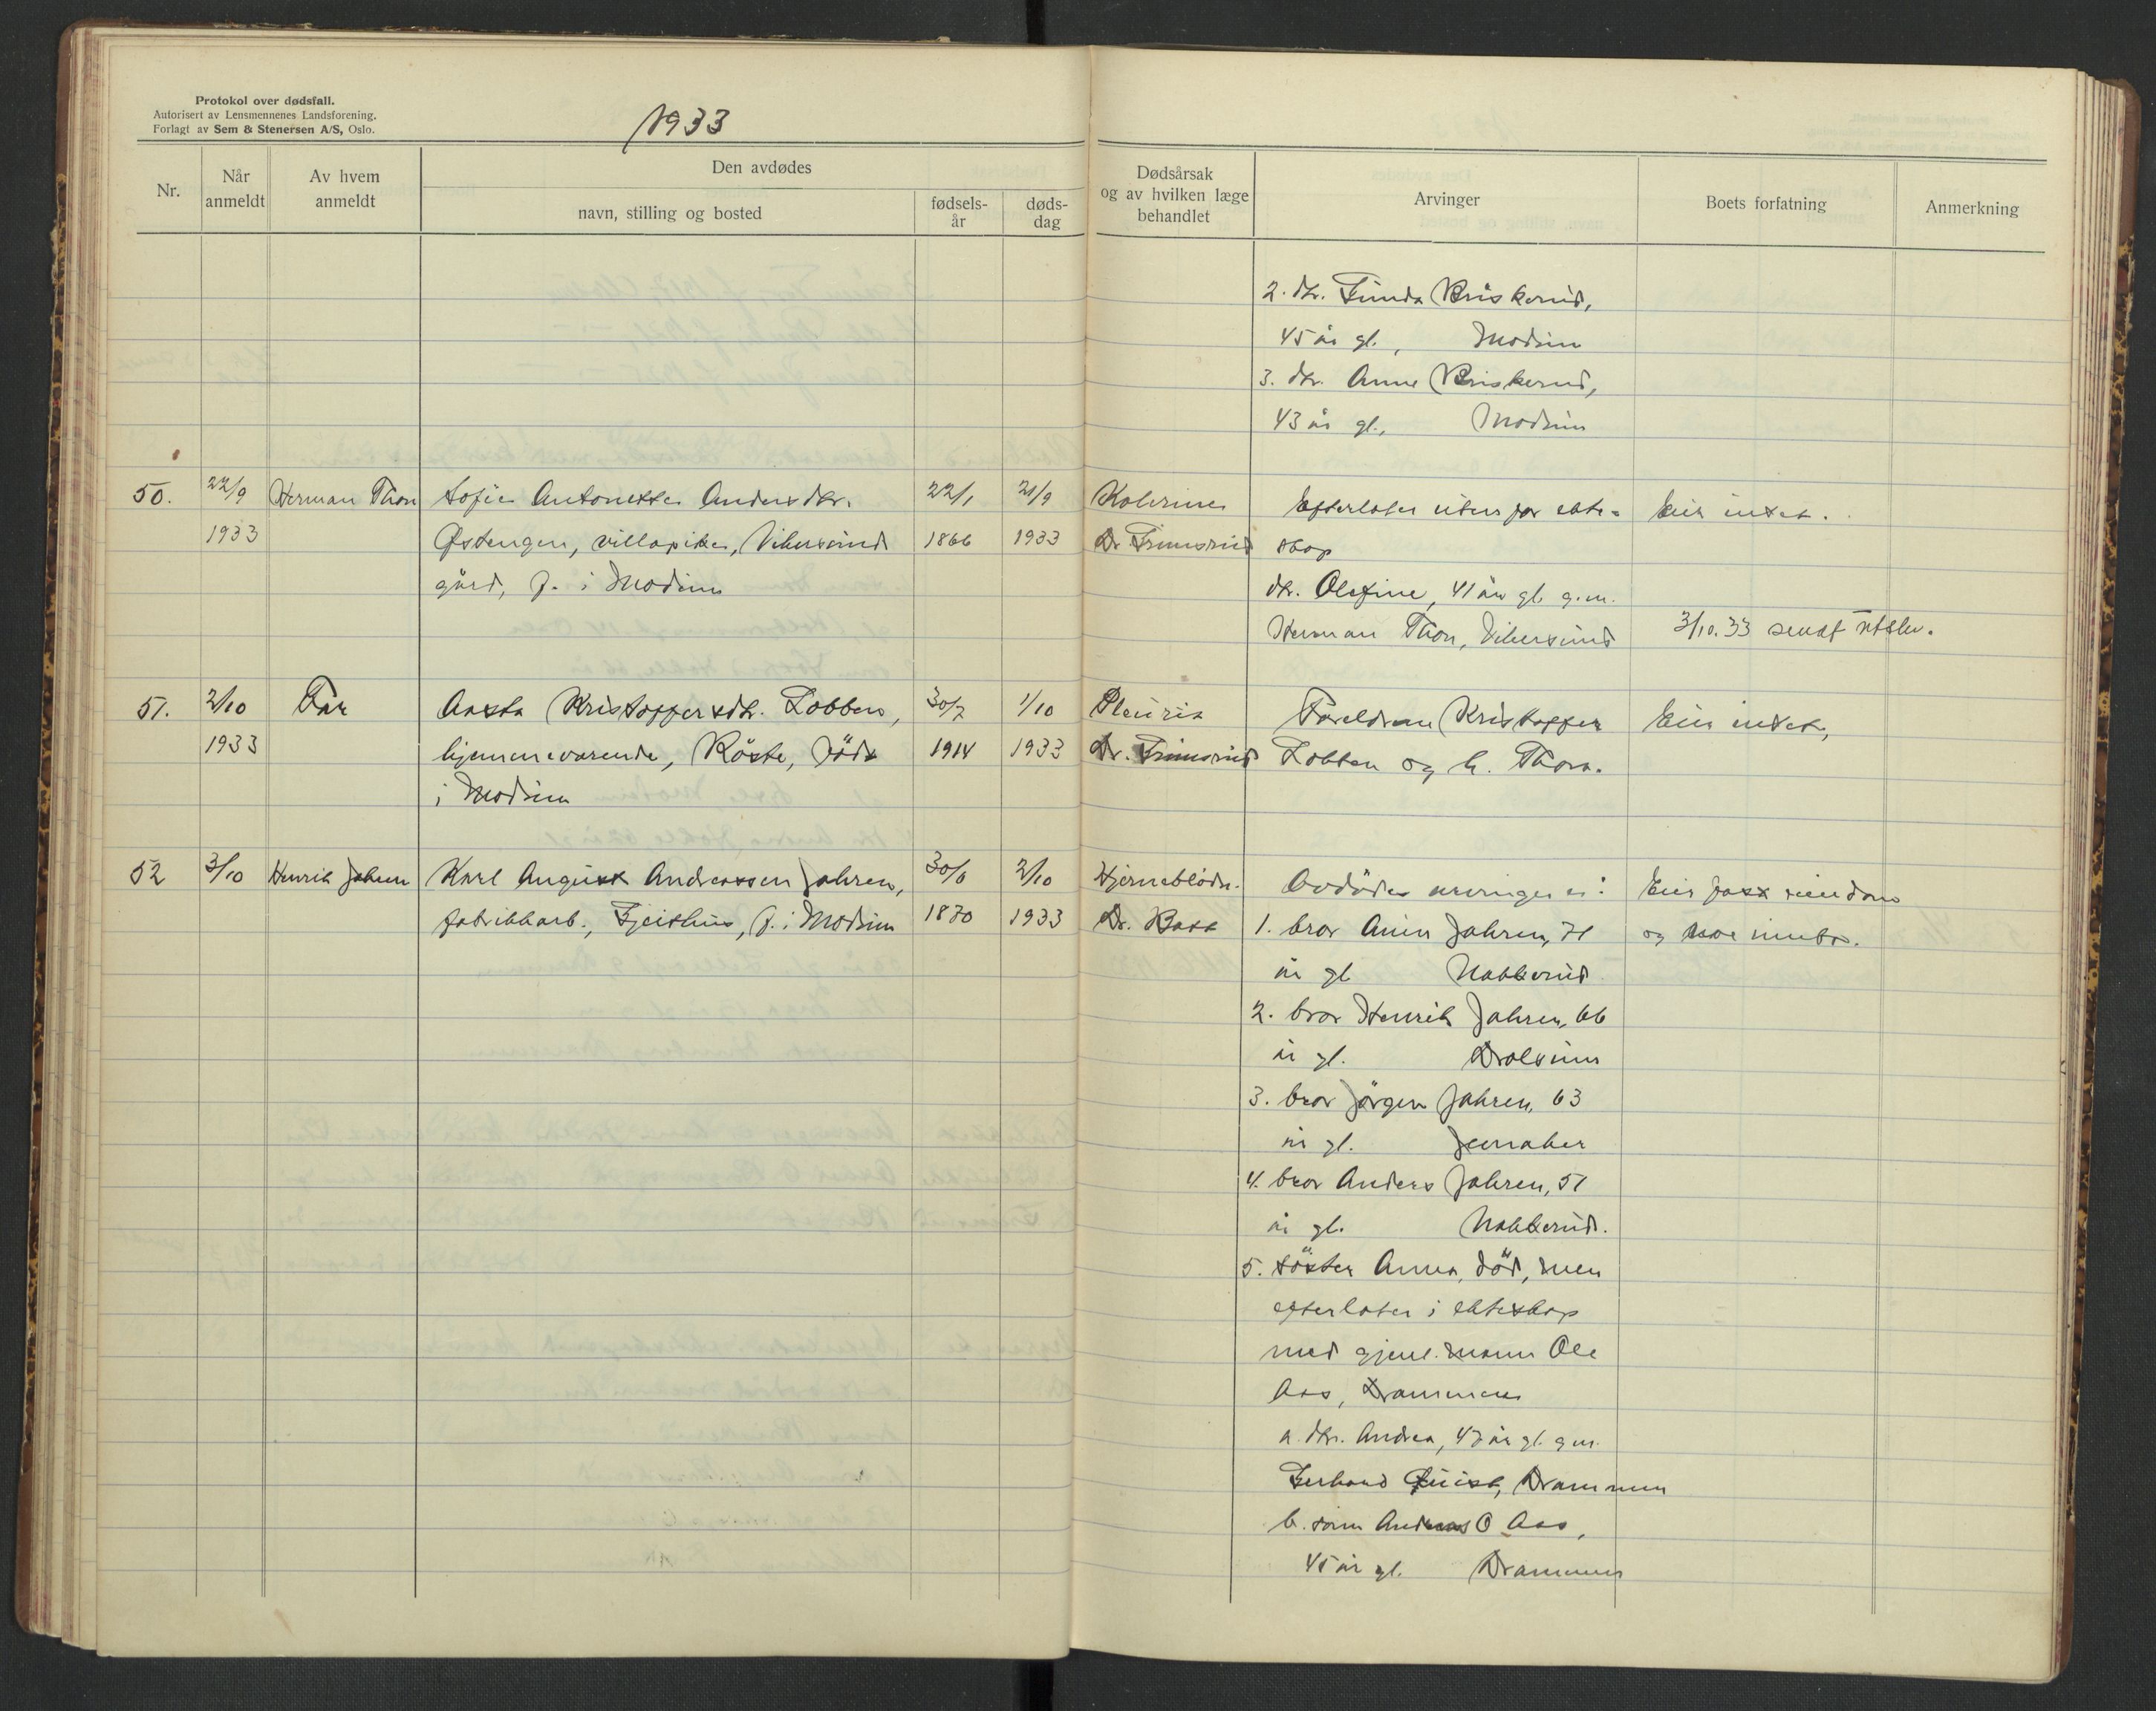 Protokol over dødsfall.
Autorisert av Lensmennenes Landsforening.
Forlagt av Sem & Stenersen A/S, Oslo.
1933
Nr.
Når anmeldt
Av hvem anmeldt
Den avdødes
navn, stilling og bosted
fødsels-år
døds-dag
Dødsårsak og av hvilken læge behandlet
Arvinger
Boets forfatning
Anmerkning
2. dtr. Briskerud,
45 år gl., Modum
3. dtr. Anne Briskerud,
43 år gl., Modum
50. 22/9 Herman Thon Sofie Antonette Andersdtr. 22/1 21/9 Efterlater utenfor ekte- Eier intet.
1933 Østengen, Vikersund 1866 1933 Dr. skap
gård, f. i Modum
dtr. Olefine, 41 år gl. g.m.
Herman Thon, Vikersund 3/10.33 sendt
51. 2/10 Far Aasta Kristoffersdtr. Lobben, 30/7 1/10 Pleurit Foreldrene Kristoffer Eier intet,
1933 hjemmeværende, Røste, født 1914 1933 Dr. Lobben og h. Thora.
i Modum
52 3/10 Henrik Jahren Karl August Andreassen Jahren, 30/6 2/10 Hjerneblødn. Avdødes arvinger er: Eier fast eiendom
fabrikkarb., Geithus, f. i Modum 1870 1933 Dr. 1. bror Jahren, 71 og noe innbo.
år gl Nakkerud
2. bror Henrik Jahren, 66
år gl. Drolsum
3. bror Jørgen Jahren, 63
år gl. Jevnaker
4. bror Anders Jahren, 51
år gl. Nakkerud.
5. søster Anna, død, men
efterlater i ekteskap
med gjenl. mann Ole
Aas, Drammen
a. dtr. Andrea, 47 år gl. g.m.
Gerhard Quist, Drammen
b. sønn Andreas O Aas,
45 år gl. Drammen